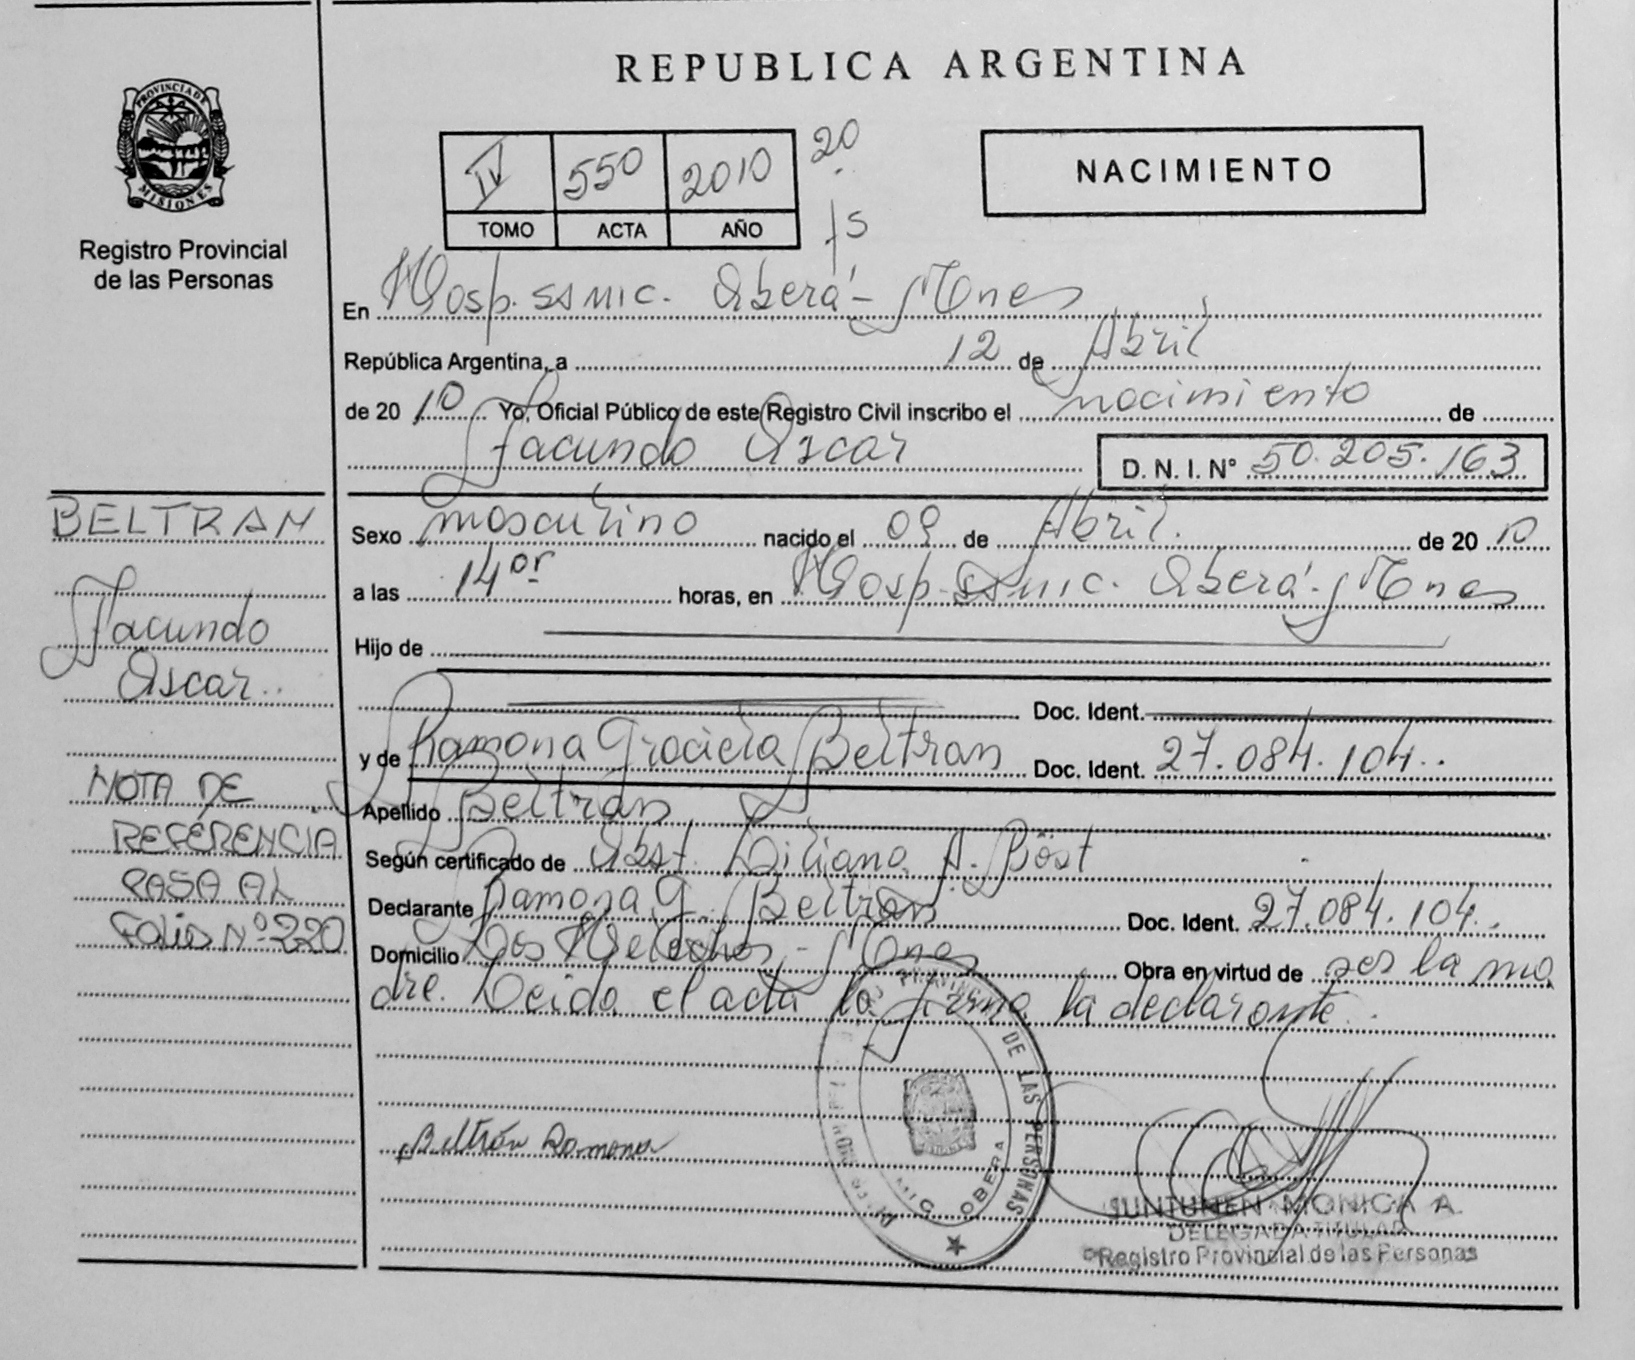 REPUBLICA ARGENTINA
PROVINCIA DE
MISIONES
Registro Provincial
de las Personas
IV 550 2010 20
TOMO ACTA AÑO 15
NACIMIENTO
En Hosp. SSMIC. Oberá - Mnes
República Argentina, a 12 de Abril
de 20 10 Yo, Oficial Público de este Registro Civil inscribo el nacimiento de
Facundo Oscar D. N. I. N° 50.205.163
BELTRAN
Facundo
Oscar
NOTA DE
REFÉRENCIA
PASA AL
FOLIO Nº 220
Sexo masculino nacido el 09 de Abril. de 20 10
a las 14 horas, en Hosp. SSMIC. Oberá - Mnes
Hijo de
Doc. Ident.
y de Ramona Graciela Beltran Doc. Ident. 27.084.104.
Apellido Beltran
Según certificado de Obst. Liliana A. Böst
Declarante Ramona G. Beltran Doc. Ident. 27.084.104.
Domicilio Dos - Mnes Obra en virtud de ser la ma
dre. Leida el acta la firma la declarante.
Beltrán Ramona
DE LAS PERSONAS
OBERA
MONICA A.
DELEGADA TITULAR
Registro Provincial de las Personas